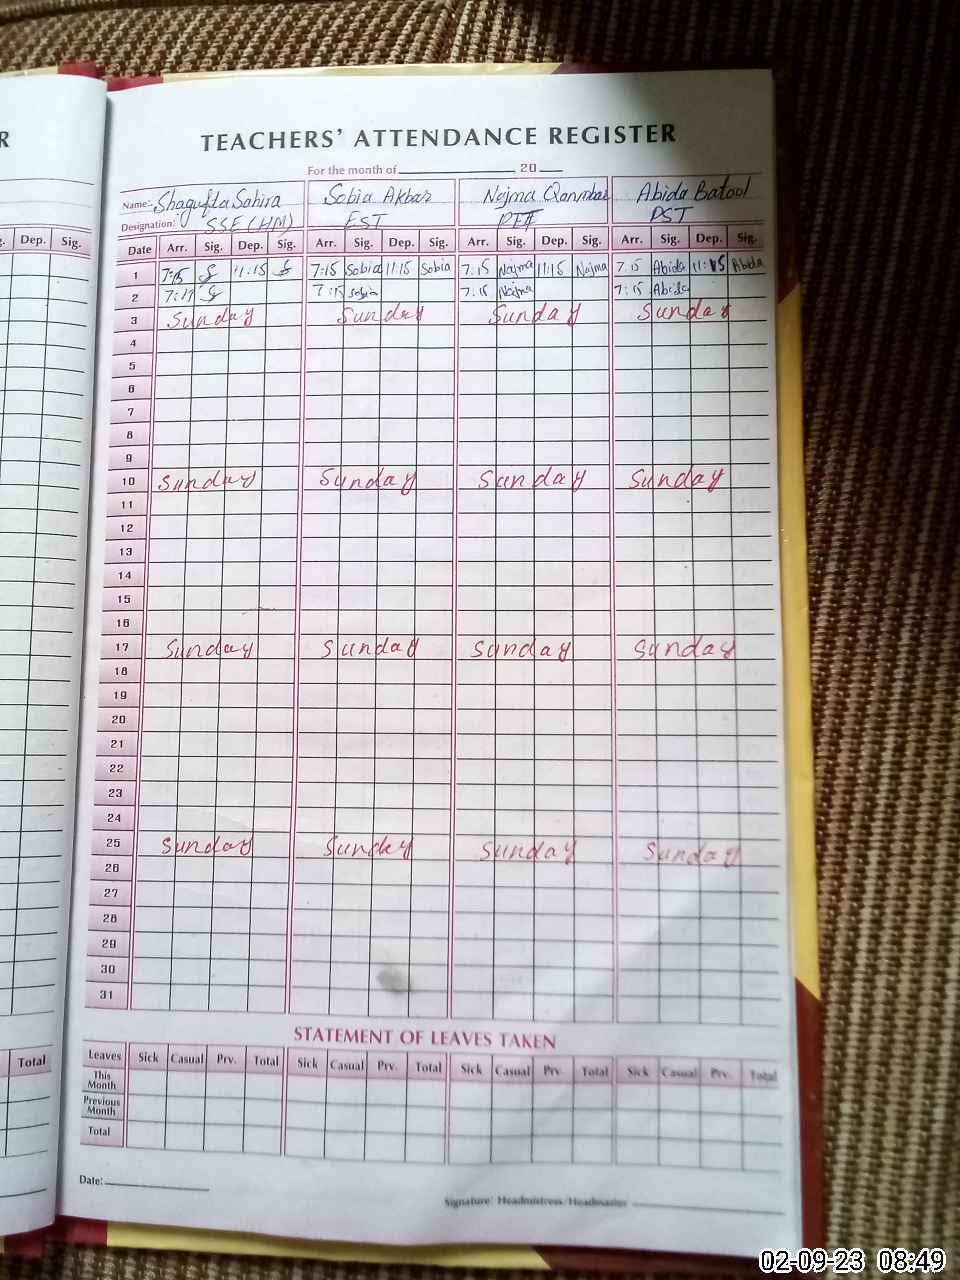 R
TEACHERS' ATTENDANCE REGISTER
For the month of 20
Name: Shagufta Sahira Sobia Akbar Najma Qanmbar Abida Batool
Designation: SSE (HM) EST PST
g. Dep. Sig. Date Arr. Sig. Dep. Sig. Arr. Sig. Dep. Sig. Arr. Sig. Dep. Sig. Arr. Sig. Dep. Sig.
1 7:15 11:15 7:15 Sobia 11:15 Sobia 7:15 Najma 11:15 Najma 7:15 Abida 11:15 Abida
2 7:15 Sobia 7:15 Najma 7:15 Abida
3 Sunday Sunday Sunday Sunday
4
5
6
7
8
9
10 Sunday Sunday Sunday Sunday
11
12
13
14
15
16
17 Sunday Sunday Sunday Sunday
18
19
20
21
22
23
24
25 Sunday Sunday Sunday Sunday
26
27
28
29
30
31
STATEMENT OF LEAVES TAKEN
Total Leaves Sick Casual Prv. Total Sick Casual Prv. Total Sick Casual Prv. Total Sick Casual Prv. Total
This Month
Previous Month
Total
Date:
Signature: Headmistress/Headmaster
02-09-23 08:49